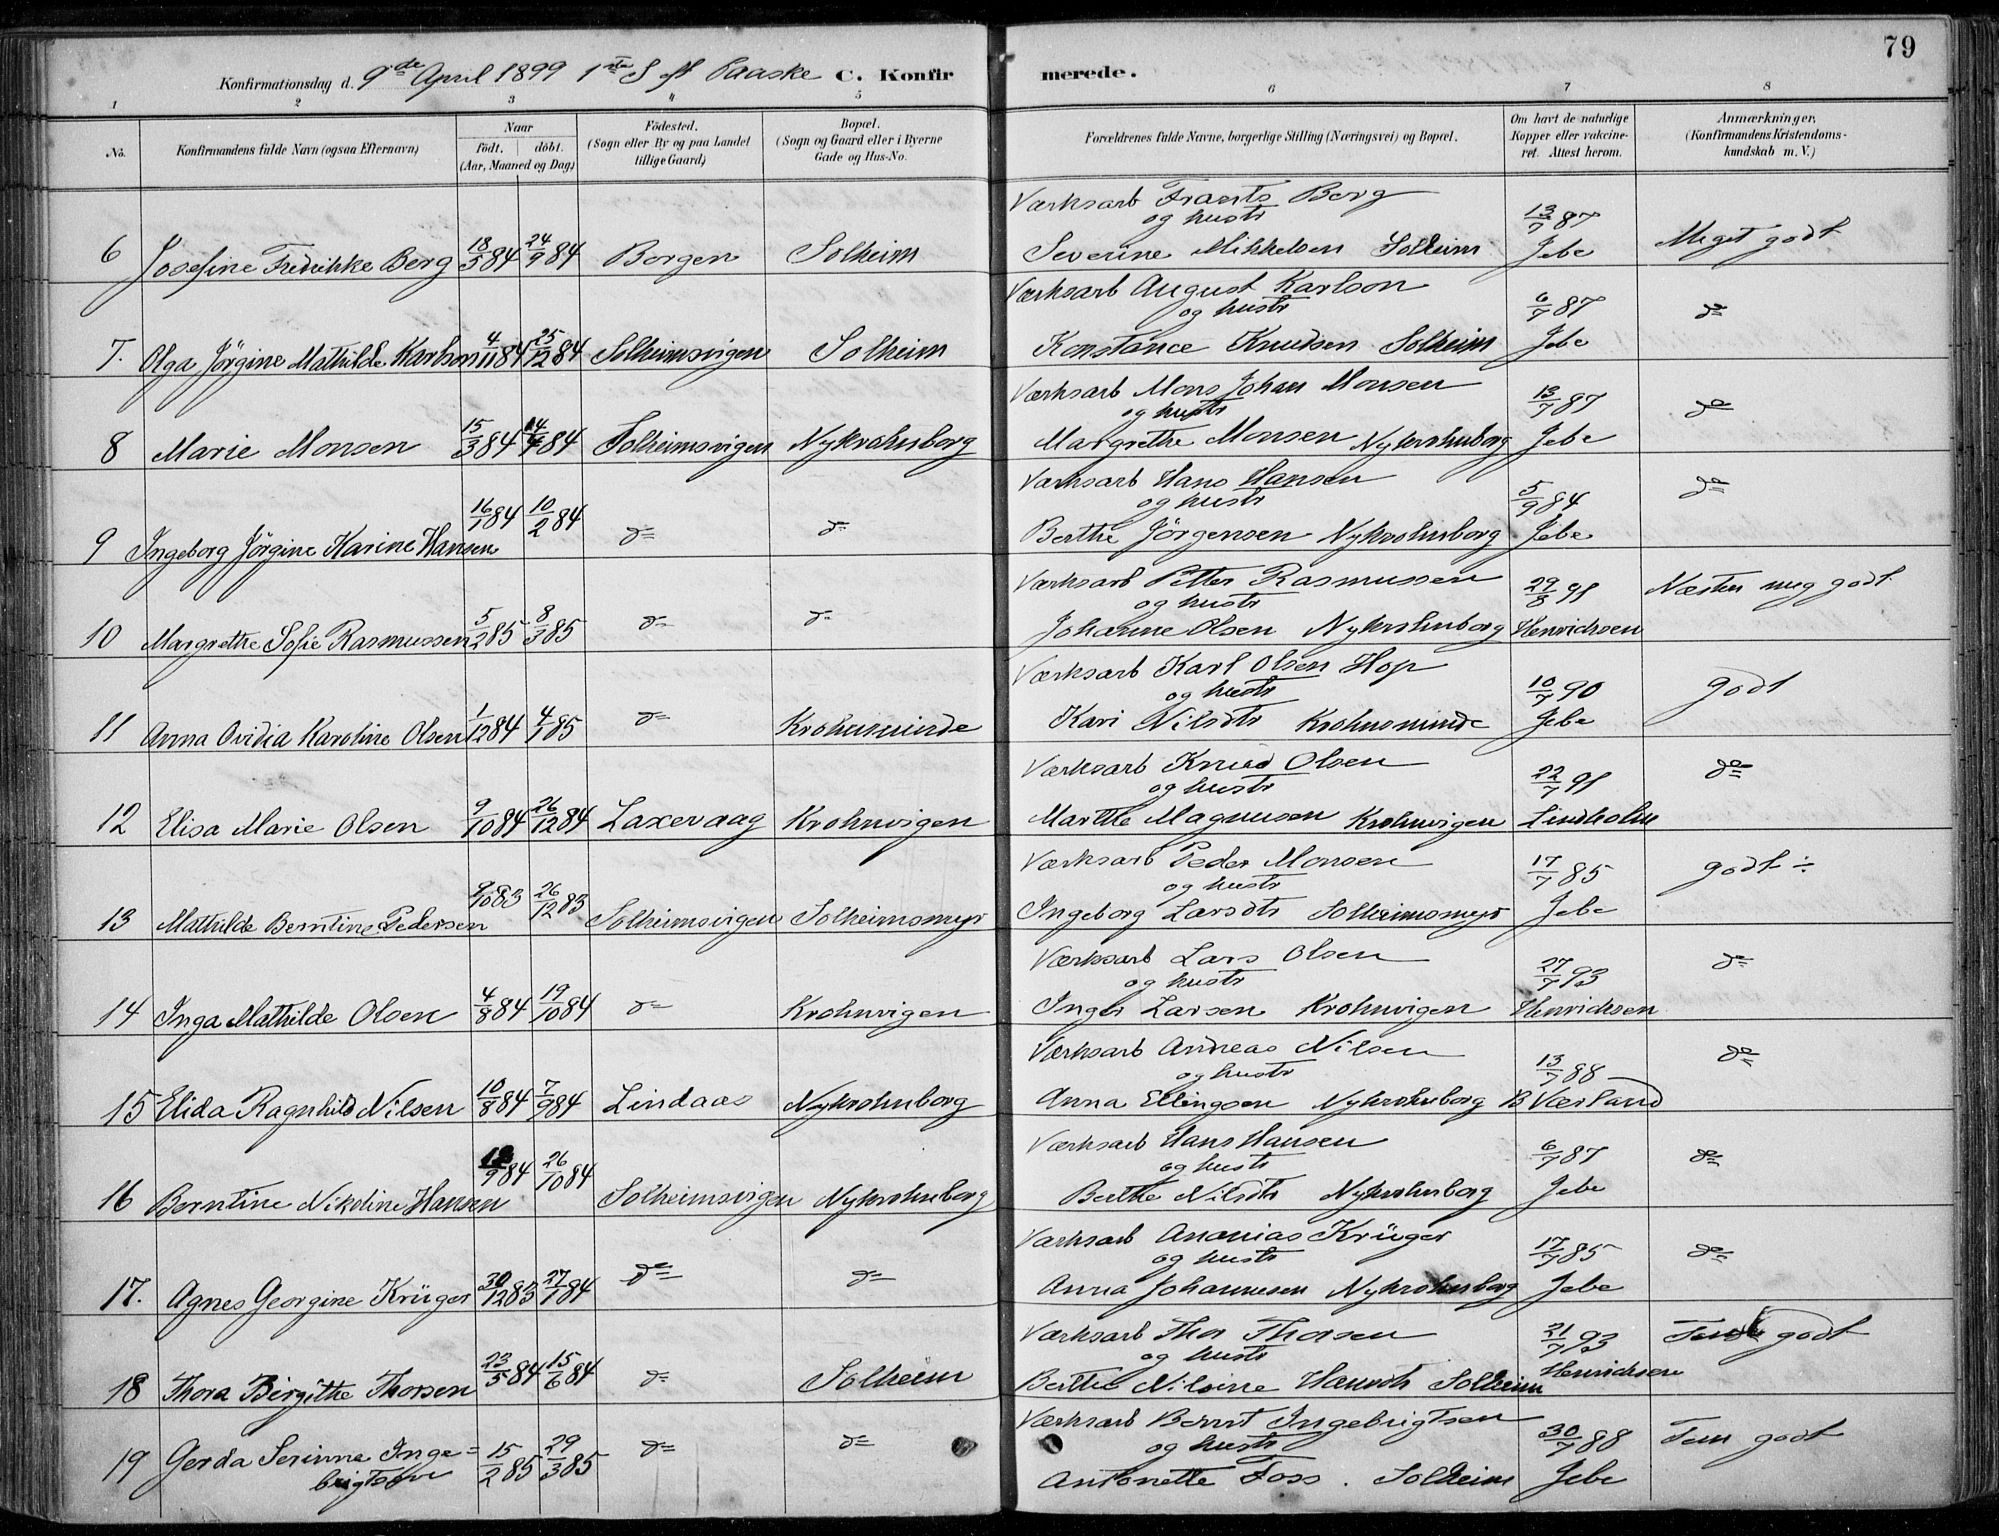 79
Konfirmationsdag d. 9de April 1899 1ste S. ef Paaske C. Konfirmerede.
1 2 3 4 5 6 7 8
No. Konfirmandens fulde Navn (ogsaa Efternavn) Naar Födt. döbt. (Aar, Maaned og Dag) Födested. (Sogn eller By og paa Landet tillige Gaard) Bopæl. (Sogn og Gaard eller i Byerne Gade og Hus-No. Forældrenes fulde Navne, borgerlige Stilling (Næringsvei) og Bopæl. Om havt de naturlige Kopper eller vakcineret. Attest herom. Anmærkninger, (Konfirmandens Kristendomskundskab m. V.)
Værksarb Frants Berg
og hustr 13/7 87
6 Josefine Fredrikke Berg 18/5 84 24/9 84 Borgen Solheim Severine Mikkelsen Solheim Jebe Meget godt
Værksarb August Karlson
og hustr 6/7 87 do
7. Olga Jörgine Mathilde Karlson 4/11 84 25/12 84 Solheimsvigen Solheim Konstance Knudsen Solheim Jebe
Værksarb Mons Johan Monsen
og hustr 13/7 87 do
8 Marie Monsen 15/3 84 14/4 84 Solheimsvigen Nykrohnborg Margrethe Monsen Nykrohnborg Jebe
Værksarb Hans Hansen
og hustr 5/9 84 do
9 Ingeborg Jörgine Karine Hansen 16/1 84 10/2 84 do do Berthe Jörgensen Nykrohnborg Jebe
Værksarb Petter Rasmussen
og hustr 29/8 98 Næsten meg godt
10 Margrethe Sofie Rasmussen 5/2 85 8/3 85 do do Johanne Olsen Nykrohnborg Henrichsen
Værksarb Karl Olsen Hop
og hustr 10/7 90 godt
11 Anna Ovidia Karoline Olsen 1/12 84 4/1 85 do Krohnsminde Kari Nilsdtr Krohnsminde Jebe
Værksarb Knud Olsen
og hustr 22/7 98 do
12 Elisa Marie Olsen 9/10 84 26/12 84 Laxevaag Krohnvigen Marthe Magnusen Krohnvigen Lindholm
Værksarb Peder Monsen
og hustr 17/7 85 godt ÷
13 Mathilde Berntine Pedersen 9/10 83 26/12 83 Solheimsvigen Solheimsmyr Ingeborg Larsdtr Solheimsmyr Jebe
Værksarb Lars Olsen
og hustr 27/7 93 do
14 Inga Mathilde Olsen 4/8 84 19/10 84 do Krohnvigen Inger Larsen Krohnvigen Henrichsen
Værksarb Andreas Nilsen
og hustr 13/7 88 do
15 Elida Ragnhild Nilsen 10/8 84 7/9 84 Lindaas Nykrohnborg Anna Ellingsen Nykrohnborg B Værland
Værksarb Hans Hansen
og hustr 6/7 87 do
16 Berntine Nikoline Hansen /9 84 26/10 84 Solheimsvigen Nykrohnborg Berthe Nilsdtr Nykrohnborg Jebe
Værksarb Ananias Krüger
og hustr 17/7 85 do
17. Agnes Georgine Krüger 30/12 83 27/1 84 do do Anna Johannesen Nykrohnborg Jebe
Værksarb Thor Thorsen
og hustr 21/7 93 Tem godt
18 Thora Birgithe Thorsen 23/5 84 15/6 84 do Solheim Berthe Nilsine Hansdtr Solheim Henrichsen
Værksarb Bernt Ingebrigtsen
og hustr 30/7 88 Tem godt
19 Gerda Serinne Inge=
brigtsen 15/2 85 29/3 85 do do Antonette Foss. Solheim Jebe